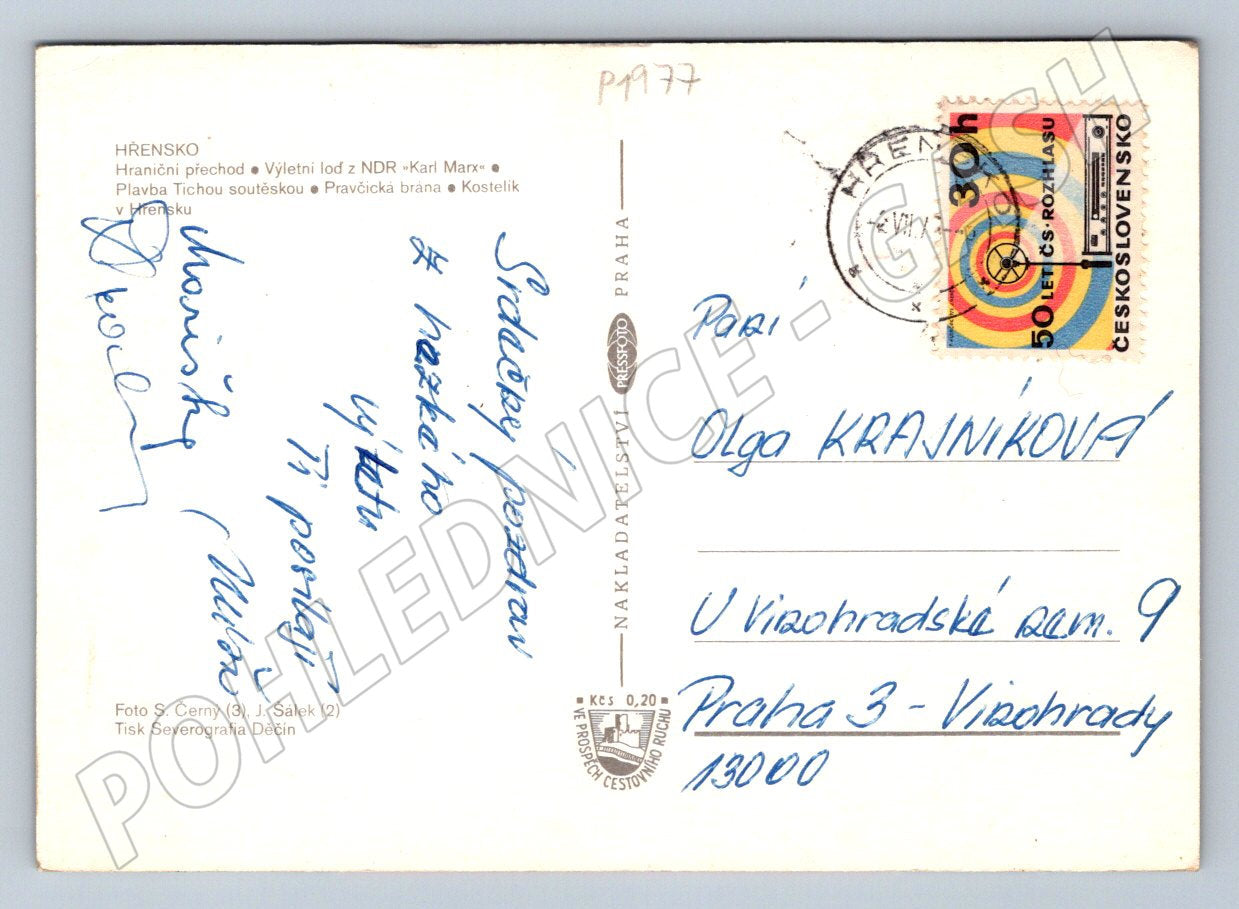 P1977
HŘENSKO
Hraniční přechod ● Výletní loď z NDR »Karl Marx« ●
Plavba Tichou soutěskou ● Pravčická brána ● Kostelík
v Hřensku
Srdečný pozdrav
z hezkého
výletu
Ti posílají
Miloš
NAKLADATELSTVÍ PRESSFOTO PRAHA
Foto S. Černý (3), J. Šálek (2)
Tisk Severografia Děčín
Kčs 0,20
VE PROSPĚCH CESTOVNÍHO RUCHU
30h
50 LET ČS. ROZHLASU
ČESKOSLOVENSKO
Paní
Olga KRAJNÍKOVÁ
U Vinohradské nem. 9
Praha 3 - Vinohrady
13000
POHLEDNICE - GASH